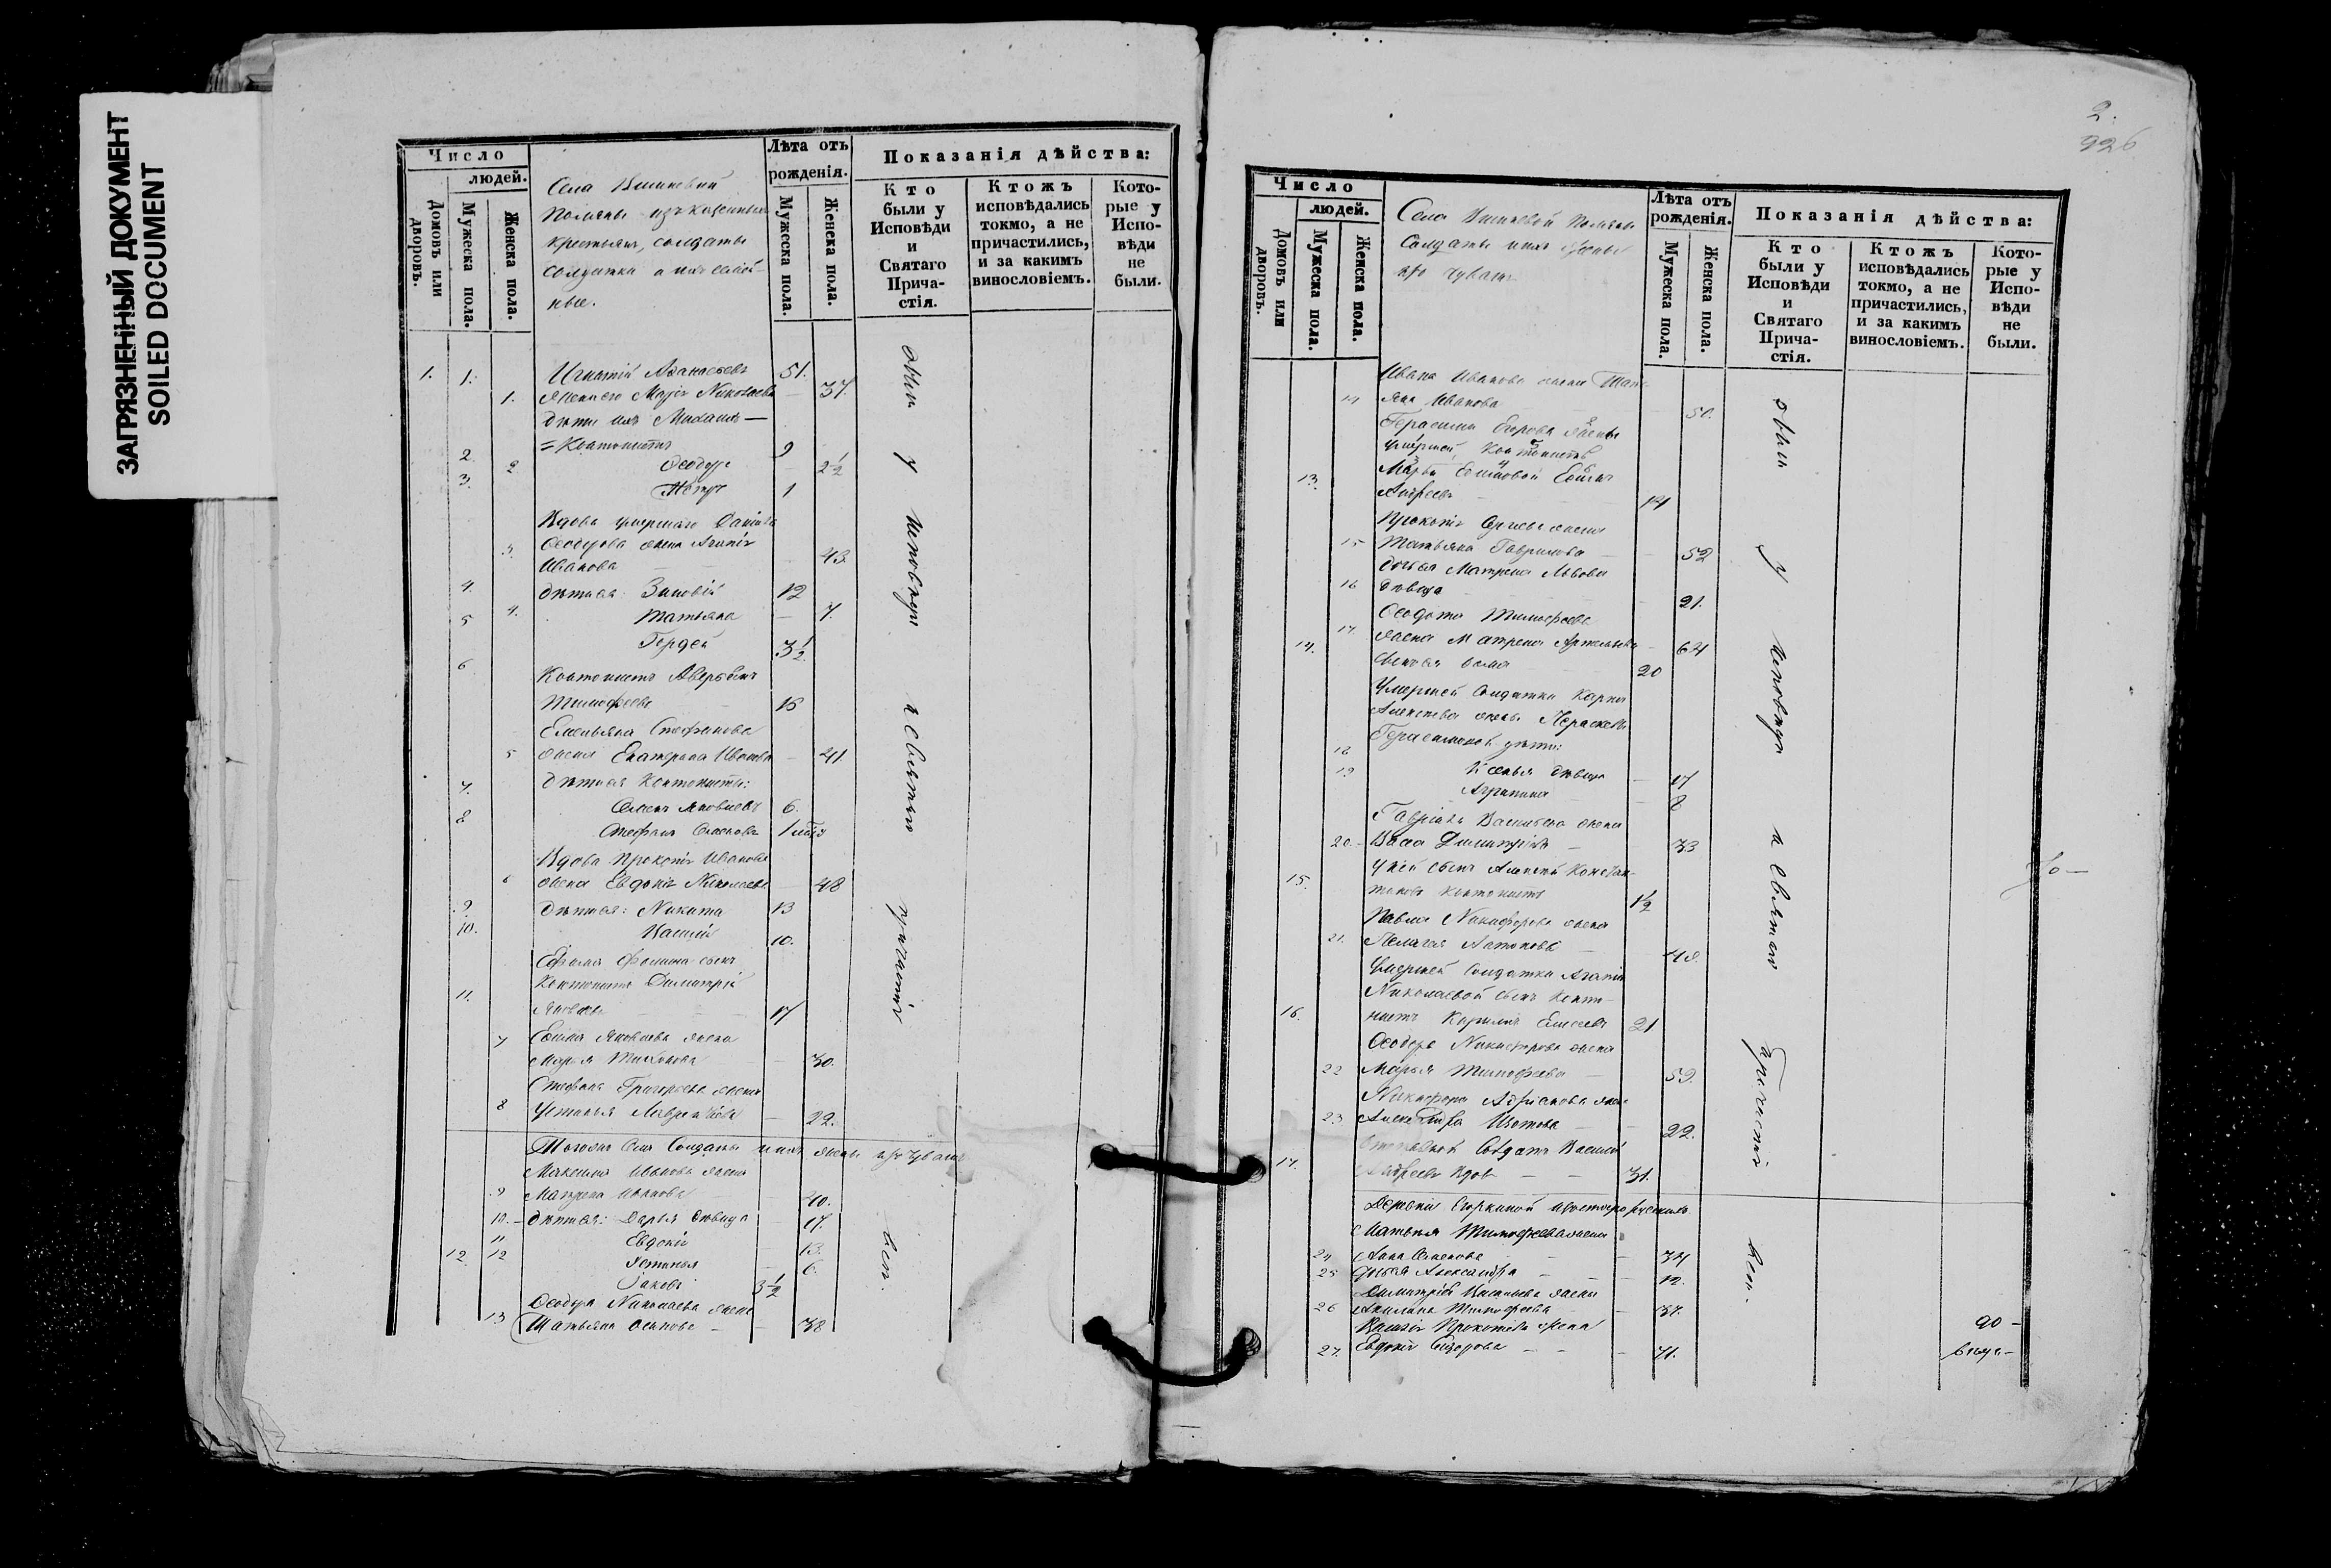 ЗАГРЯЗНЕННЫЙ ДОКУМЕНТ
SOILED DOCUMENT
Число
людей.
Домовъ или дворовъ.
Мужеска пола.
Женска пола.
Села
Поляны изъ казенныхъ
крестьянъ, солдаты
солдатки и ихъ семей-
ные.
Лѣта отъ
рожденія.
Мужеска пола.
Женска пола.
Показанія дѣйства:
Кто
были у
Исповѣди
и
Святаго
Прича-
стія.
Ктожъ
исповѣдались
токмо, а не
причастились,
и за какимъ
винословіемъ.
Кото-
рые у
Испо-
вѣди
не
были.
1. 1. Игнатій Аѳанасьевъ 51.
1. Жена его Марія Николаева 37.
дѣти ихъ Михаилъ —
2. = Кантонистъ 9
2 Ѳеодора 2½
3. Петръ 1
Вдова умершаго Данила
Ѳеодорова жена
3. Иванова 43.
4. дѣти ея: Зиновій 12
4. Татьяна 7.
5 Гордей 3½
Кантонистъ Аверьянъ
6 Тимофеевъ 16
Емельяна Стефанова
5 жена Екатерина Иванова 41.
дѣти ея Кантонисты:
7. Семенъ Яковлевъ 6.
8 Стефанъ 1
Вдова Прокопія Иванова
6 жена Евдокія Николаева 48
9. дѣти ея: Никита 13
10. Василій 10.
Ефима Фомина сынъ
Кантонистъ Димитрій
11. Яковлевъ 17
Яковлева жена
7 Марья Тихонова 30.
Стефана Григорьева жена
8 Устинья Лаврентьева 22.
Тогожъ Села Солдаты и ихъ жены изъ чувашъ
Максима Иванова жена
9 Матрена Иванова 40.
10. дѣти ея: Дарья дѣвица 17.
11 Евдокія 13.
12 Устинья 6.
12 Яковъ 3½
Ѳеодора Николаева жена
13 Татьяна Осипова 38
были у исповѣди и святаго причастія
вси.
2.
926
Число
людей.
Домовъ или дворовъ.
Мужеска пола.
Женска пола.
Села Поляны
Солдаты ихъ жены
изъ чувашъ
Лѣта отъ
рожденія.
Мужеска пола.
Женска пола.
Показанія дѣйства:
Кто
были у
Исповѣди
и
Святаго
Прича-
стія.
Ктожъ
исповѣдались
токмо, а не
причастились,
и за какимъ
винословіемъ.
Кото-
рые у
Испо-
вѣди
не
были.
Ивана Иванова жена Тать-
14 яна Иванова 50.
Герасима Егорова жены
умершей, Кантонистъ
Марьи
13. Андреевъ 14
Прокопія жена
15 Татьяна Гаврилова 52
дочь ея Матрена Львова
16 дѣвица 21.
Ѳеодота Тимофеева
17. жена Матрена 64
14. сынъ ея 20
Умершей Солдатки Карпа
Алексѣева жены Параскевы
Герасимовой дѣти:
18 Ксенья дѣвица 17
19 Агрипина 8
Гавріила Васильева жена
20. Васса Димитріева 33
У ней сынъ Алексѣй Констан-
15. тиновъ Кантонистъ 1½
Павла Никифорова жена
21. Пелагея Антонова 48.
Умершей Солдатки Агапіи
Николаевой сынъ Канто-
16. нистъ Кириллъ Елисеевъ 21
Ѳеодора Никифорова жена
22 Марья Тимофеева 59.
Никифора Адріанова жена
23. Александра Изотова 22.
Солдатъ Василій
17. Андреевъ вдовъ 31.
Деревни
Тимофеева жена
24 Анна Семенова 34
25 дочь ея Александра 12.
Димитрія Васильева жена
26 Акилина Тимофеева 37.
Василія Прокопіева жена
27. Евдокія 71.
были у исповѣди и святаго причастія
вси.
90 —